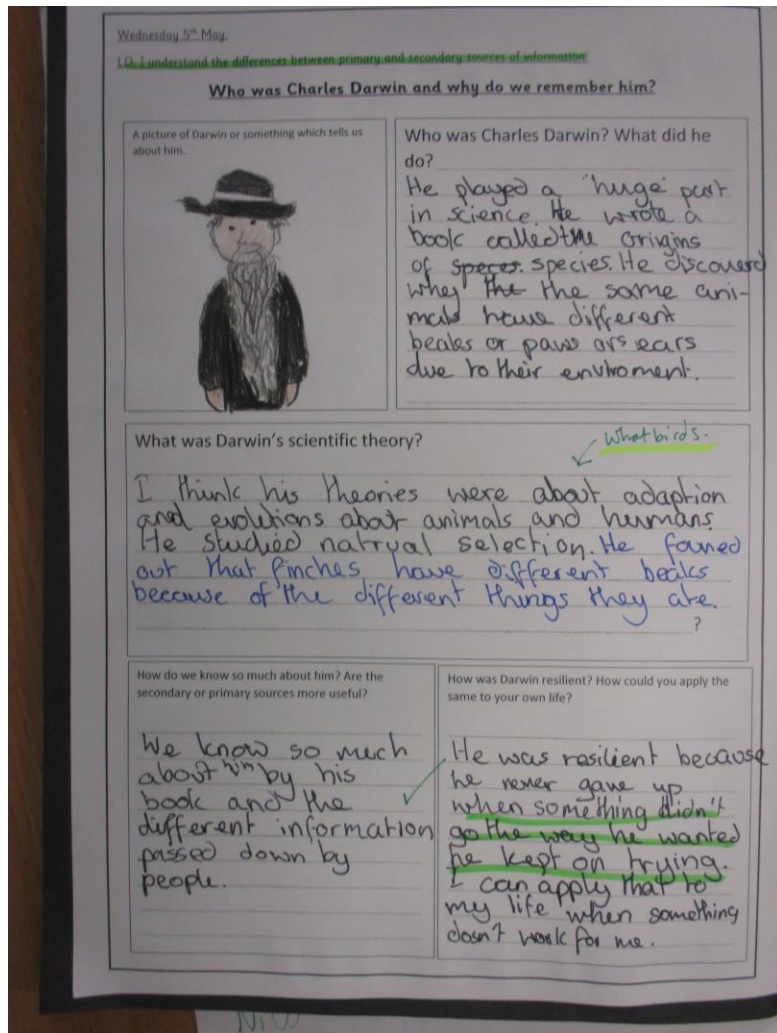 Wednesday 5th May.
I.O. I understand the differences between primary and secondary sources of information.
Who was Charles Darwin and why do we remember him?
A picture of Darwin or something which tells us
about him.
Who was Charles Darwin? What did he
do?
He played a "huge" part
in science. He wrote a
book called the Origins
of speces. species. He discoverd
whey the the same ani-
mals have different
beaks or paws ors ears
due to their enviroment.
What was Darwin's scientific theory?
What birds.
I think his theories were about adaption
and evolutions about animals and humans.
He studied natryual selection. He founed
out that finches have different beaks
because of the different things they ate.
?
How do we know so much about him? Are the
secondary or primary sources more useful?
We know so much
about him by his
book and the
different information
passed down by
people.
How was Darwin resilient? How could you apply the
same to your own life?
He was resilient because
he never gave up
when something didn't
go the way he wanted
he kept on trying.
I can apply that to
my life when something
dosn't work for me.